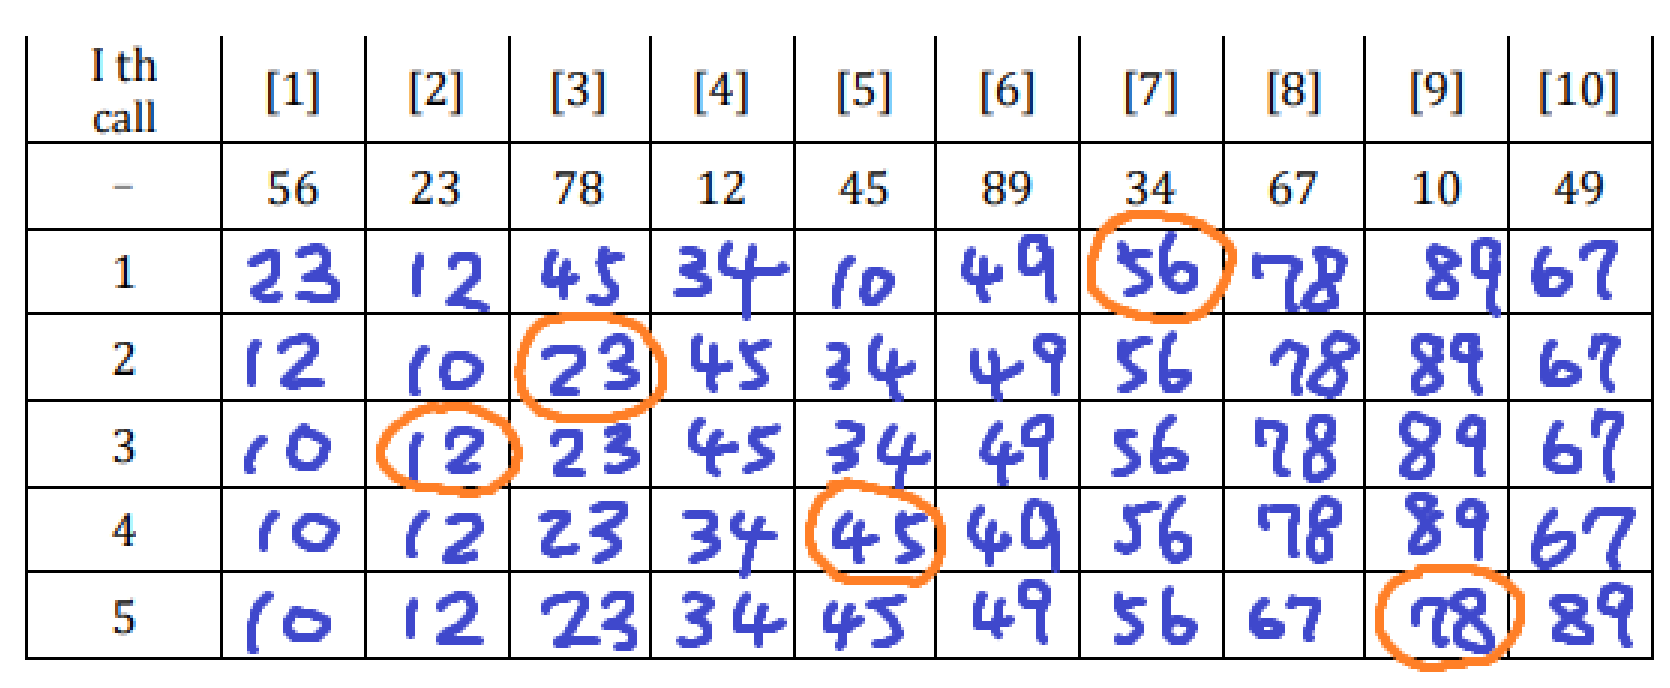 I th call [1] [2] [3] [4] [5] [6] [7] [8] [9] [10]
– 56 23 78 12 45 89 34 67 10 49
1 23 12 45 34 10 49 56 78 89 67
2 12 10 23 45 34 49 56 78 89 67
3 10 12 23 45 34 49 56 78 89 67
4 10 12 23 34 45 49 56 78 89 67
5 10 12 23 34 45 49 56 67 78 89